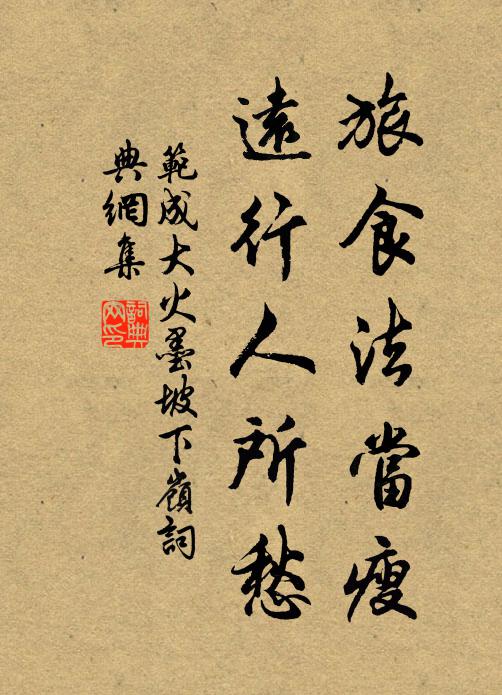 旅食法當瘦
遠行人所愁
範成大火墨坡下嶺詞
典網集
詞典
网印